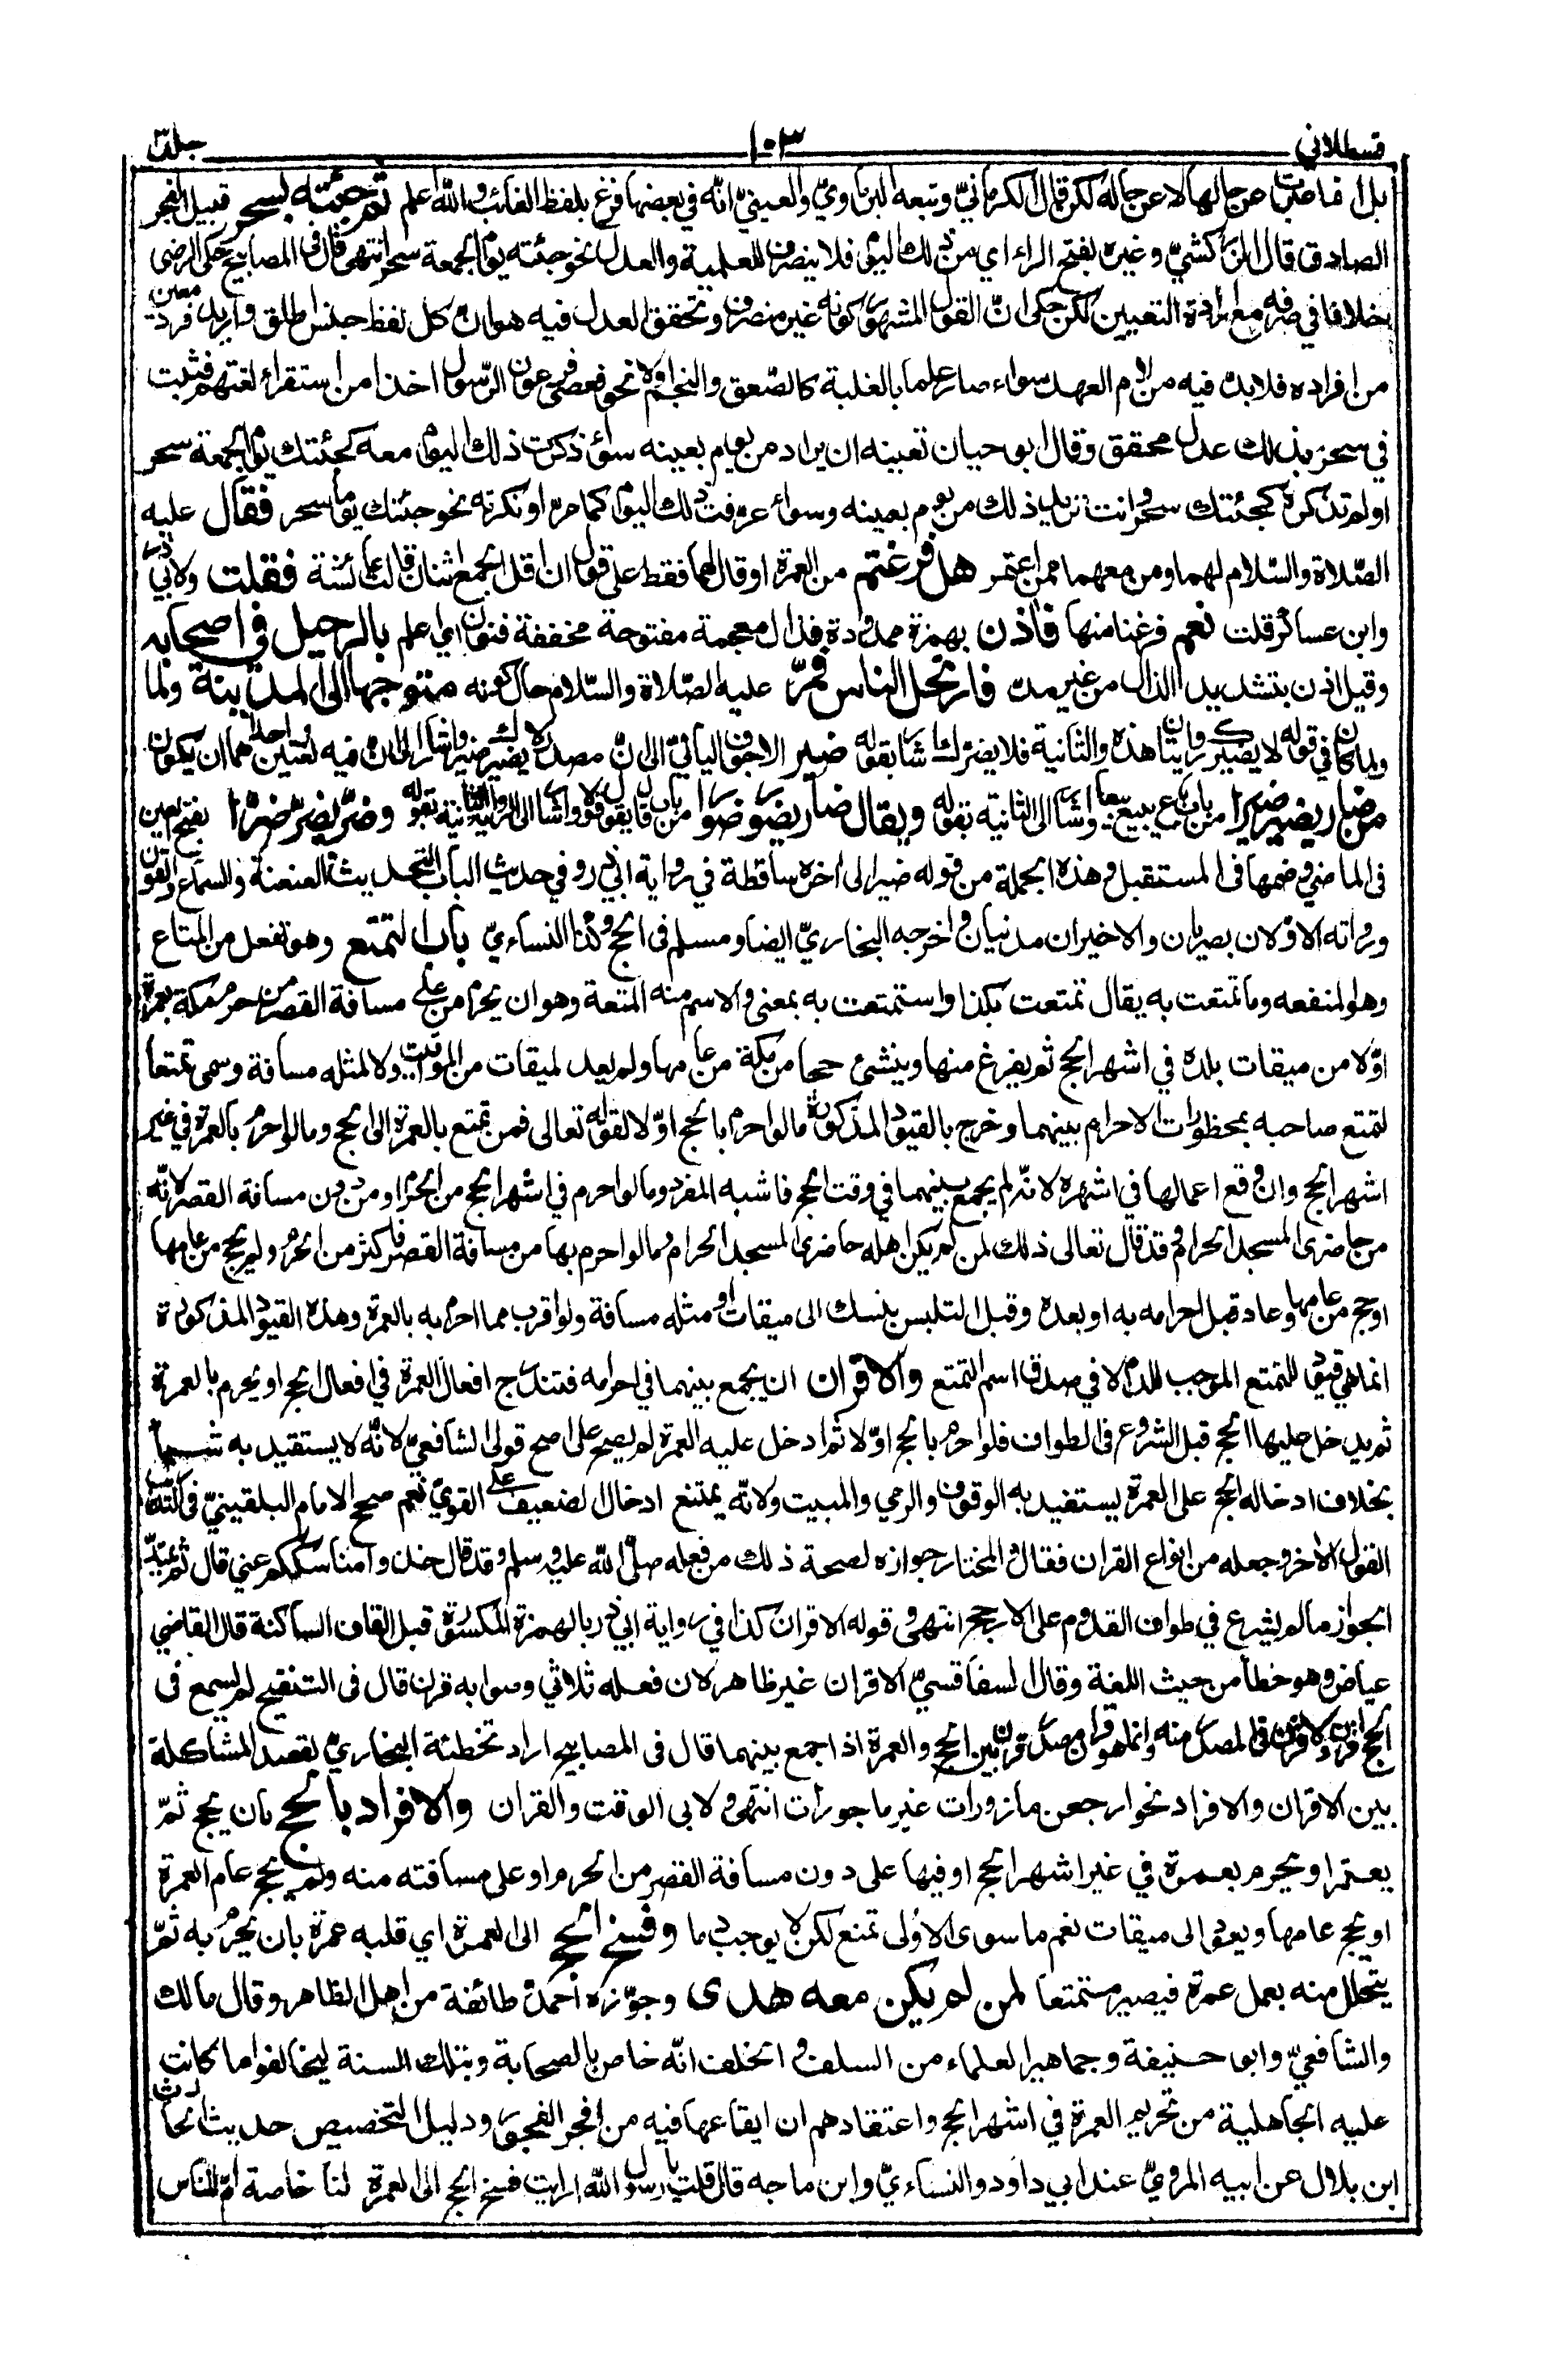 قسطلاني ١٠٣ جلد٣
بل فاضت عن حالها لا عن حاله لكن قال الكرماني وتبعه البرماوي والعيني انه في بعضها فرغ بلفظ الغائب والله اعلم ثم جئته بسحر قبيل الفجر
الصادق قال الزركشي وغيره بفتح الراء اي من ذلك اليوم فلا ينصرف للعلمية والعدل نحو جئته يوم الجمعة سحر انتهى قال في المصابيح حكى الرضى
خلافا في صرفه مع ارادة التعيين لكن حكى ان القول المشهور كونه غير منصرف وتحقق العدل فيه هو ان كل لفظ جنس اطلق واريد فرد معين
من افراده فلا بد فيه من لام العهد سواء صار علما بالغلبة كالصعق والنجم اولا نحو فعصى فرعون الرسول اخذا من استقراء لغتهم فثبت
في سحر بذلك عدل محقق وقال ابو حيان تعيينه ان يراد من يوم بعينه سواء ذكرت ذلك اليوم معه كجئتك يوم الجمعة سحر
او لم تذكره كجئتك سحر وانت تريد ذلك من يوم بعينه وسواء عرفت ذلك اليوم كما مر او نكرته نحو جئتك يوما سحر فقال عليه
الصلاة والسلام لهما ومن معهما ممن اعتمر هل فرغتم من العمرة او قال لهما فقط على قول ان اقل الجمع اثنان قالت عائشة فقلت ولابي ذر
وابن عساكر قلت نعم فرغنا منها فاذن بهمزة ممدودة فذال معجمة مفتوحة مخففة فنون اي اعلم بالرحيل في اصحابه
وقيل اذن بتشديد الذال من غير مد فارتحل الناس فمر عليه الصلاة والسلام حال كونه متوجها الى المدينة ولما
ولما كان في قوله لا يضيرك روايتان هذه والثانية فلا يضرك اشار بقوله ضير الاجوف اليائي الى ان مصدر لا يضيرك ضير واشار الى ان فيه لغتين احداهما ان يكون
من ضار يضير ضيرا من باب باع يبيع بيعا واشار الى الثانية بقوله ويقال ضار يضور ضورا من باب قال يقول قولا واشار الى الرواية الثانية بقوله وضر يضر ضرا بفتح العين
في الماضي وضمها في المستقبل وهذه الجملة من قوله ضير الى اخره ساقطة في رواية ابي ذر وفي حديث الباب التحديث والعنعنة والسماع والقول
ورواته الاولان بصريان والاخيران مدنيان واخرجه البخاري ايضا ومسلم في الحج وكذا النساءي باب التمتع وهو تفعل من المتاع
وهو المنفعه وما تمتعت به يقال تمتعت بكذا واستمتعت به بمعنى والاسم منه المتعة وهو ان يحرم من على مسافة القصر من حرم مكة بعمرة
اولا من ميقات بلده في اشهر الحج ثم يفرغ منها وينشئ حجا من مكة من عامها ولم يعد لميقات من المواقيت ولا لمثله مسافة وسمى تمتعا
لتمتع صاحبه بمحظورات الاحرام بينهما وخرج بالقيود المذكورة ما لو احرم بالحج اولا لقوله تعالى فمن تمتع بالعمرة الى الحج وما لو احرم بالعمرة في غير
اشهر الحج وان وقع اعمالها في اشهره لانه لم يجمع بينهما في وقت الحج فاشبه المفرد وما لو احرم في اشهر الحج من الحرم او من دون مسافة القصر لانه
من حاضرى المسجد الحرام وقد قال تعالى ذلك لمن لم يكن اهله حاضرى المسجد الحرام وما لو احرم بها من مسافة القصر فاكثر من الحرم ولم يحج من عامها
او حج من عامها وعاد قبل احرامه به او بعده وقبل التلبس بنسك الى ميقات او مثله مسافة ولو اقرب مما احرم به بالعمرة وهذه القيود المذكورة
انما هي قيود للتمتع الموجب للدم لا في صدق اسم التمتع والاقران ان يجمع بينهما في احرامه فتندرج افعال العمرة في افعال الحج او يحرم بالعمرة
ثم يدخل عليها الحج قبل الشروع في الطواف فلو احرم بالحج اولا ثم ادخل عليه العمرة لم يصح على اصح قولى الشافعي لانه لا يستفيد به شيئا
بخلاف ادخاله الحج على العمرة يستفيد به الوقوف والرمي والمبيت ولانه يمتنع ادخال الضعيف على القوي نعم صحح الامام البلقيني في التدريب
القول الآخر وجعله من انواع القران فقال والمختار جوازه لصحة ذلك من فعله صلى الله عليه وسلم وقد قال خذوا مناسككم عني قال ثم يمتد
الجواز ما لم يشرع في طواف القدوم على الارجح انتهى وقوله الاقران كذا في رواية ابي ذر بالهمزة المكسورة قبل القاف الساكنة قال القاضي
عياض وهو خطا من حيث اللغة وقال السفاقسي الاقران غير ظاهر لان فعله ثلاثي وصوابه قرن قال في التنقيح لم يسمع في
الحج اقرن ولا قرن في المصدر منه وانما هو قران مصدر قرن بين الحج والعمرة اذا جمع بينهما قال في المصابيح اراد تخطئة البخاري لقصد المشاكلة
بين الاقران والافراد نحو ارجعن مازورات غير ماجورات انتهى ولابي الوقت والقران والافراد بالحج بان يحج ثم
يعتمر او يحرم بعمرة في غير اشهر الحج او فيها على دون مسافة القصر من الحرم او على مسافته منه ولم يحج عام العمرة
او يحج عامها ويعود الى ميقات نعم ما سوى الاولى تمتع لكن لا يوجب دما وفسخ الحج الى العمرة اي قلبه عمرة بان يحرم به ثم
يتحلل منه بعمل عمرة فيصير متمتعا لمن لم يكن معه هدى وجوزه احمد وطائفة من اهل الظاهر وقال مالك
والشافعي وابو حنيفة وجماهير العلماء من السلف والخلف انه خاص بالصحابة وبتلك السنة ليخالفوا ما كانت
عليه الجاهلية من تحريم العمرة في اشهر الحج واعتقادهم ان ايقاعها فيه من افجر الفجور ودليل التخصيص حديث الحارث
ابن بلال عن ابيه المروي عند ابي داود والنساءي وابن ماجه قال قلت يا رسول الله ارايت فسخ الحج الى العمرة لنا خاصة ام للناس